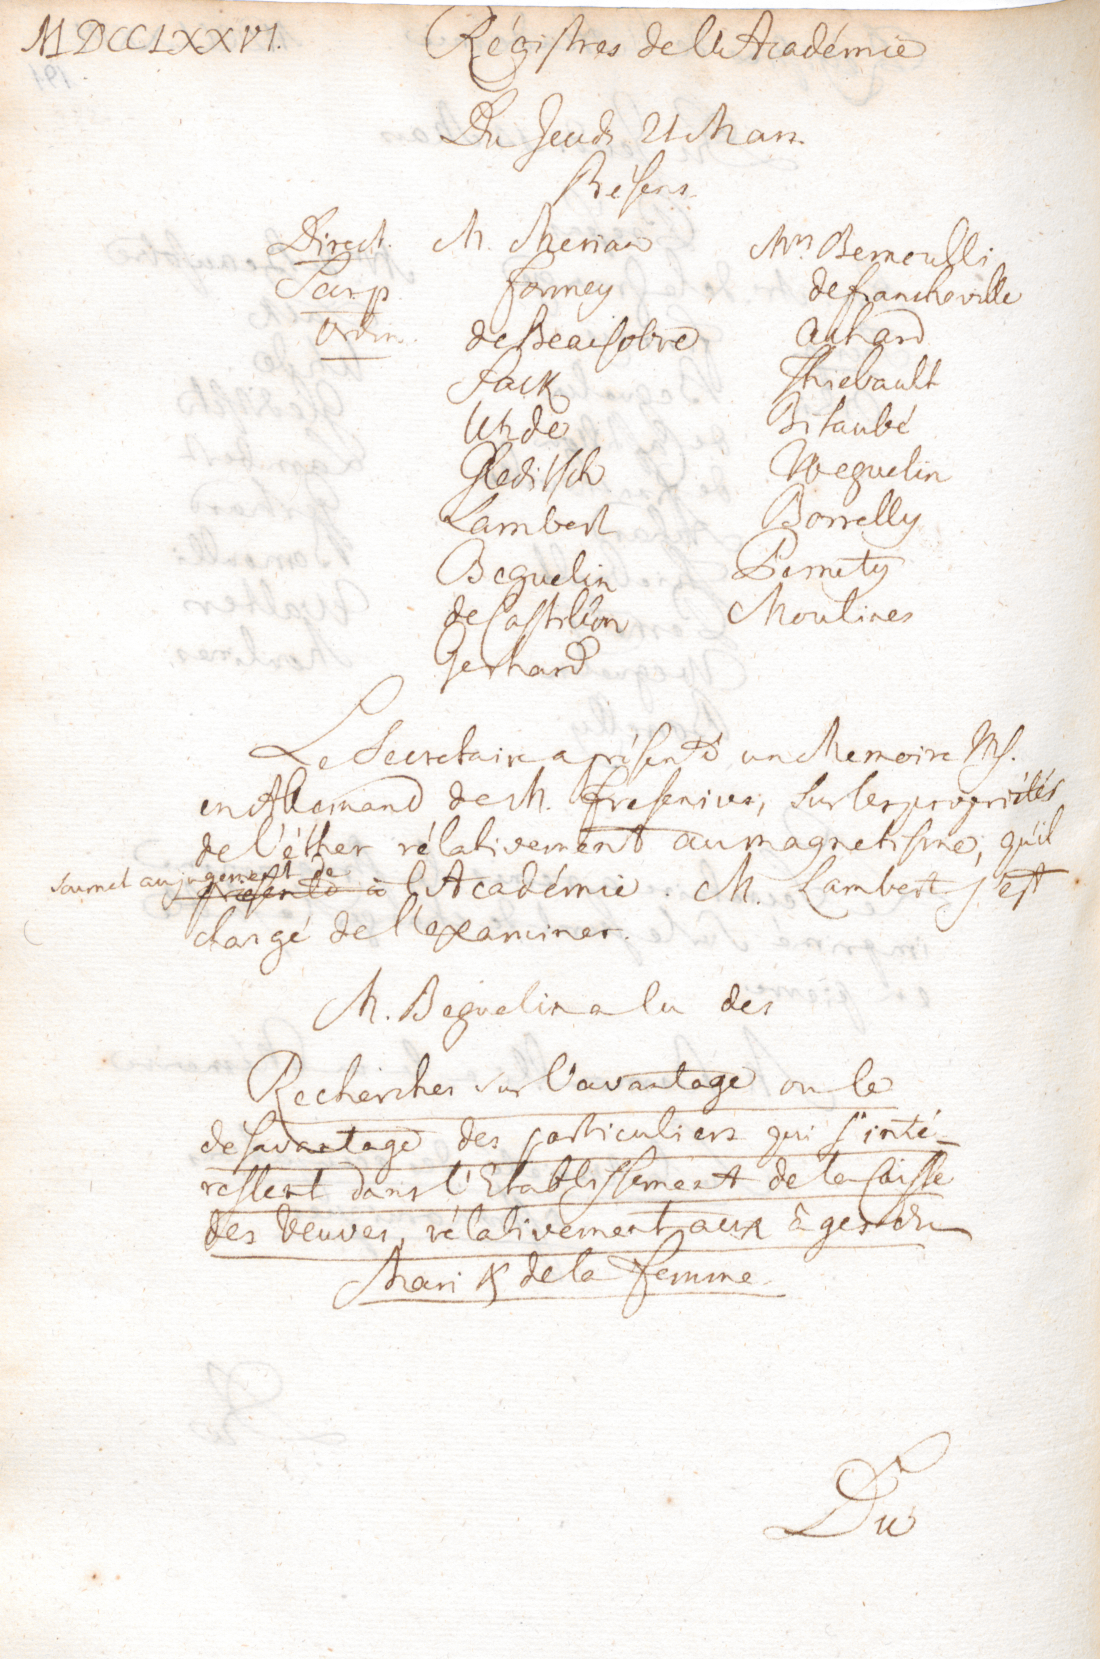 MDCCLXXVI. Régistres de l'Académie
Du Jeudi 21 Mars.
Présens.
Direct. M. Merian Mrs. Bernoulli
Formey de Francheville
Ordin. de Beausobre Achard
Sack Thiebault
Uhde Bitaubé
Gleditsch Weguelin
Lambert Borrelly
Beguelin Pernety
de Castillon Moulines
Gerhard
Le Secretaire a présenté un Memoire Ms.
en Allemand de M. Fresenius, sur les propriétés
de l'éther rélativement au magnetisme, qu'il
soumet au jugement de
présente à l'Académie. M. Lambert s'est
chargé de l'examiner.
M. Beguelin a lu des
Recherches sur l'avantage ou le
desavantage des particuliers qui s'inté-
ressent dans l'Etablissement de la Caisse
des Veuves, rélativement aux âges du
Mari & de la Femme.
Du